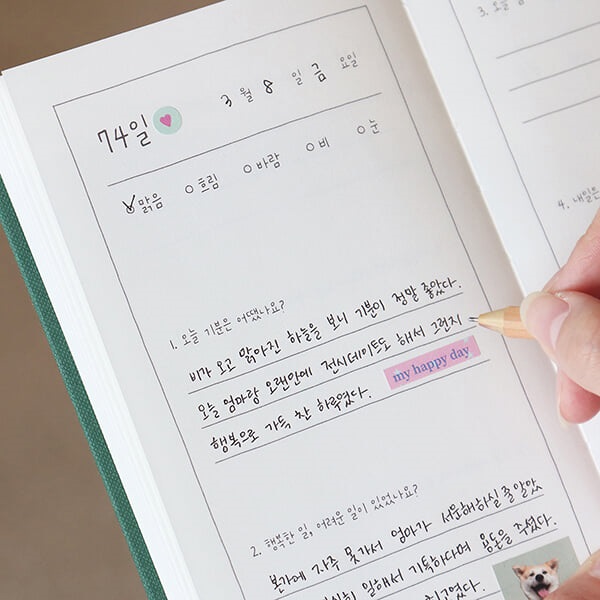 74일
3 월 8 일 금 요일
맑음 흐림 바람 비 눈
1. 오늘 기분은 어땠나요?
비가 오고 맑아진 하늘을 보니 기분이 정말 좋았다.
오늘 엄마랑 오랜만에 전시데이트도 해서 그런지
행복으로 가득 찬 하루였다.
my happy day
2. 행복한 일, 어려운 일이 있었나요?
본가에 자주 못가서 엄마가 서운해하실 줄 알았
일해서 기특하다며 용돈을 주셨다.
3. 오늘
4. 내일은